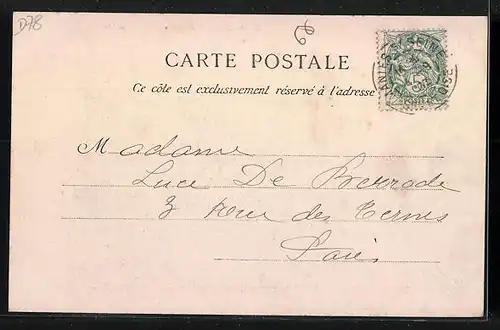 D78
CARTE POSTALE
Ce côte est exclusivement réservé à l'adresse
Madame
Luce De
3 rue des Ternes
Paris